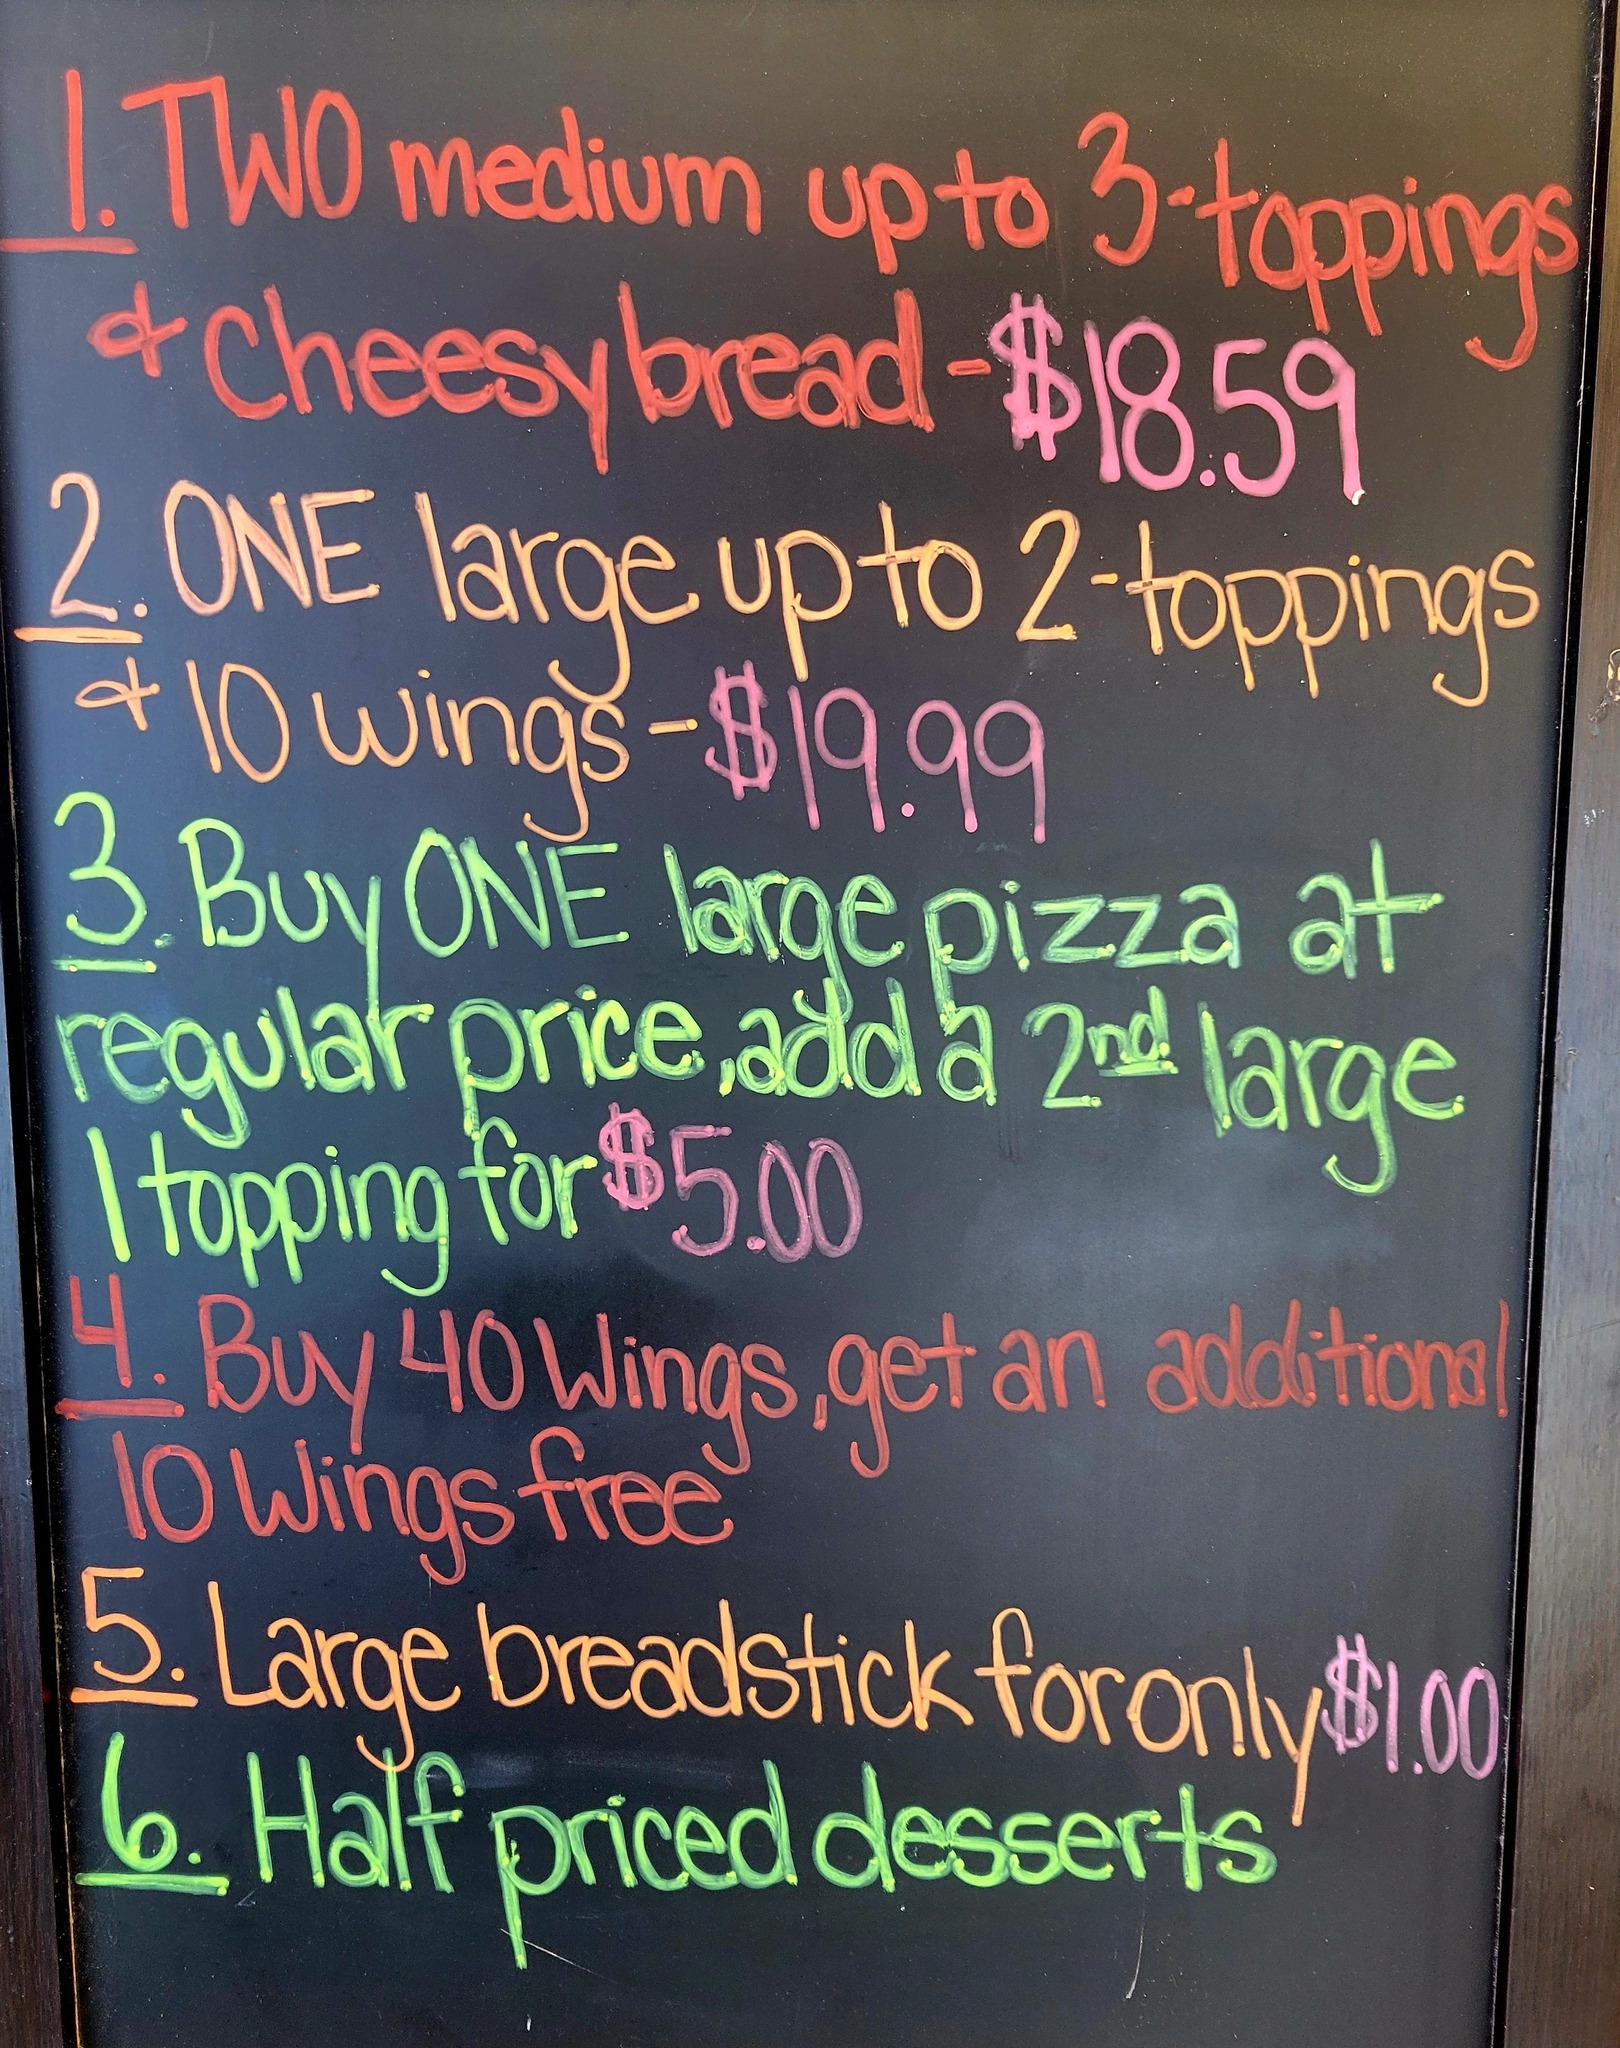 1. TWO medium up to 3-toppings
& Cheesybread - $18.59
2. ONE large up to 2-toppings
& 10 wings - $19.99
3. Buy ONE large pizza at
regular price, add a 2nd large
1 topping for $5.00
4. Buy 40 Wings, get an additional
10 Wings free
5. Large breadstick for only $1.00
6. Half priced desserts